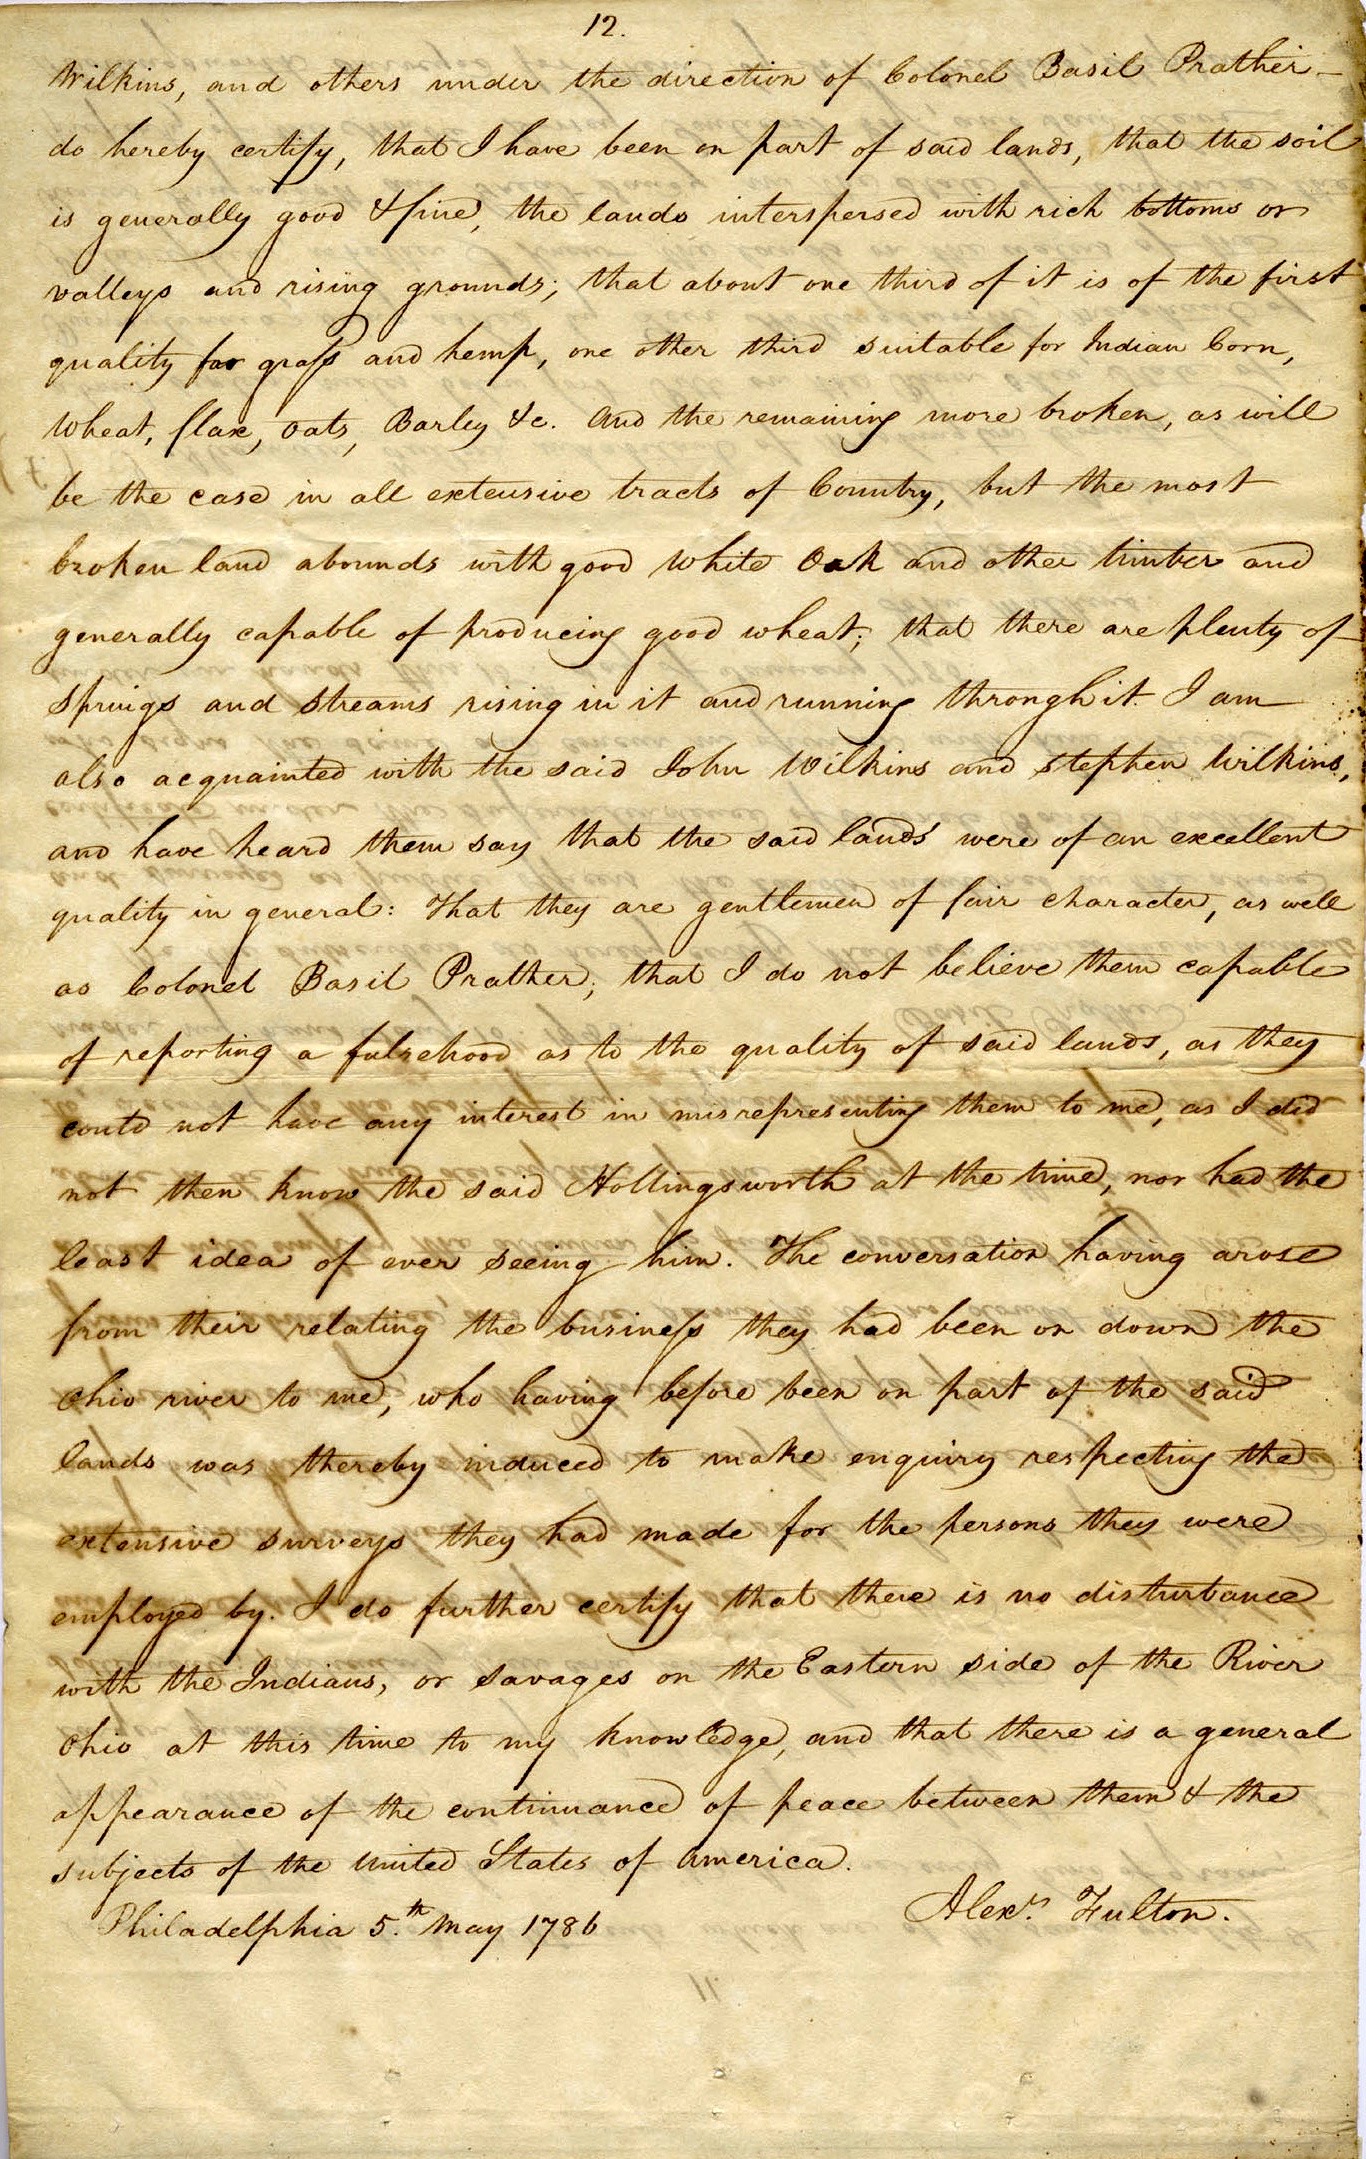 12.
Wilkins, and others under the direction of Colonel Basil Prather—
do hereby certify, that I have been on part of said lands, that the soil
is generally good & fine, the lands interspersed with rich bottoms or
valleys and rising grounds; that about one third of it is of the first
quality for grass and hemp, one other third suitable for Indian Corn,
Wheat, flax, Oats, Barley &c. And the remaining more broken, as will
be the case in all extensive tracts of Country, but the most
broken land abounds with good White Oak and other timber and
generally capable of producing good wheat; that there are plenty of
Springs and Streams rising in it and running through it. I am
also acquainted with the said John Wilkins and Stephen Wilkins,
and have heard them say that the said lands were of an excellent
quality in general: That they are gentlemen of fair character, as well
as Colonel Basil Prather; that I do not believe them capable
of reporting a falsehood as to the quality of said lands, as they
could not have any interest in misrepresenting them to me, as I did
not then know the said Hollingsworth at the time, nor had the
least idea of ever seeing him. The conversation having arose
from their relating the business they had been on down the
Ohio river to me, who having before been on part of the said
lands was thereby induced to make enquiry respecting the
extensive surveys they had made for the persons they were
employed by. I do further certify that there is no disturbance
with the Indians, or Savages on the Eastern side of the River
Ohio at this time to my knowledge, and that there is a general
appearance of the continuance of peace between them & the
subjects of the United States of America.
Alexr. Fulton.
Philadelphia 5.th May 1786
11.